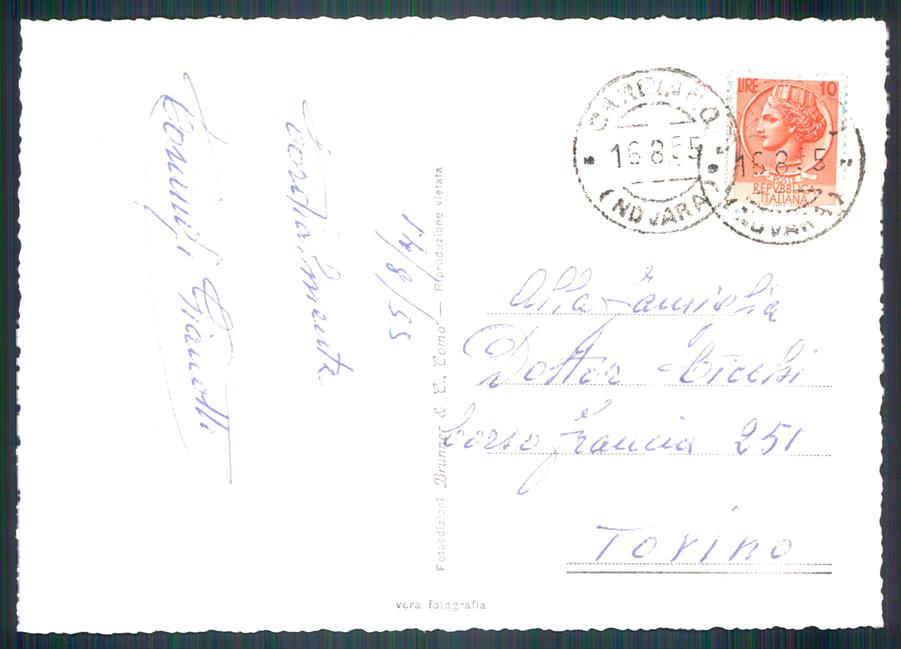 Cordialmente
14/8/55
Fotoedizioni Brunner & C., Como — Riproduzione vietata
16.8.55
(NOVARA)
16.8.55
(NOVARA)
LIRE 10
POSTE
REPVBBLICA
ITALIANA
Alla Famiglia
Dottor
Corso Francia 251
Torino
vera fotografia